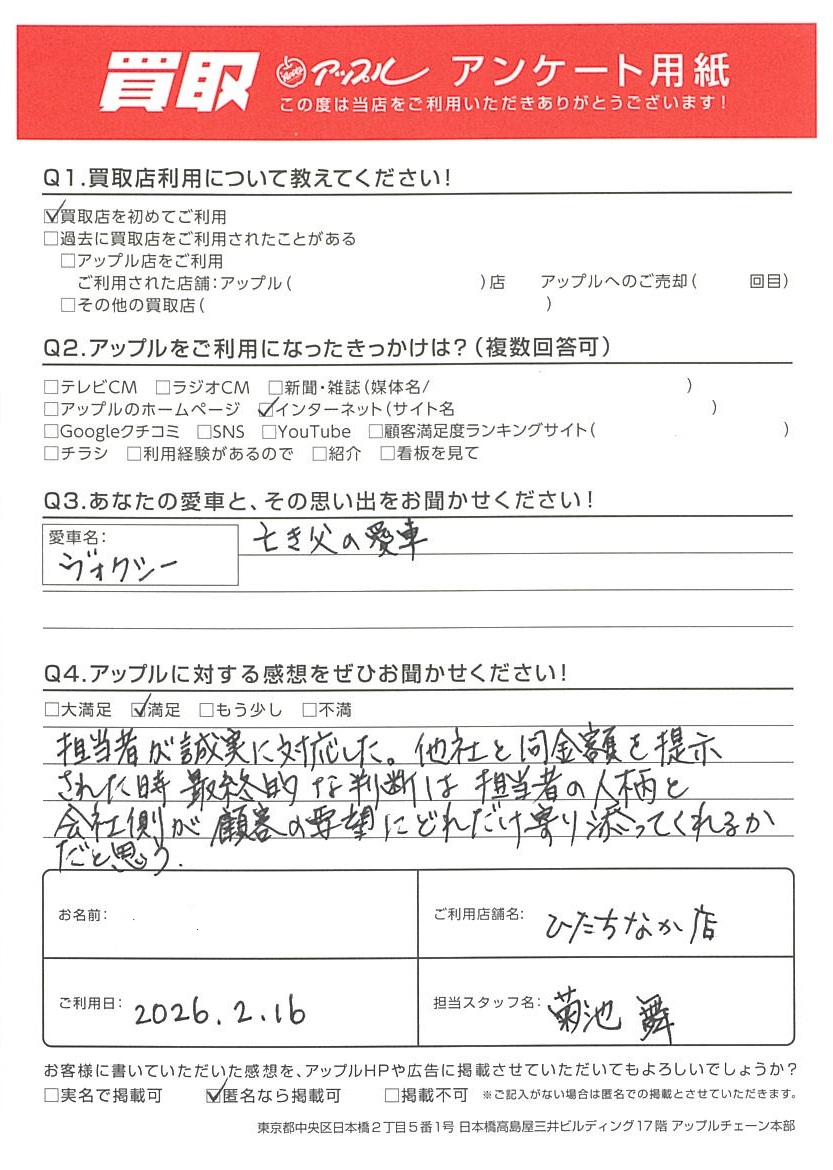 買取 アップル アンケート用紙
この度は当店をご利用いただきありがとうございます!
Q1.買取店利用について教えてください!
☑買取店を初めてご利用
□過去に買取店をご利用されたことがある
□アップル店をご利用
ご利用された店舗:アップル( )店 アップルへのご売却( 回目)
□その他の買取店( )
Q2.アップルをご利用になったきっかけは?(複数回答可)
□テレビCM □ラジオCM □新聞・雑誌(媒体名/ )
□アップルのホームページ ☑インターネット(サイト名 )
□Googleクチコミ □SNS □YouTube □顧客満足度ランキングサイト( )
□チラシ □利用経験があるので □紹介 □看板を見て
Q3.あなたの愛車と、その思い出をお聞かせください!
愛車名: 亡き父の愛車
ヴォクシー
Q4.アップルに対する感想をぜひお聞かせください!
□大満足 ☑満足 □もう少し □不満
担当者が誠実に対応した。他社と同金額を提示
された時最終的な判断は担当者の人柄と
会社側が顧客の要望にどれだけ寄り添ってくれるか
だと思う.
お名前: ご利用店舗名: ひたちなか店
ご利用日: 2026.2.16 担当スタッフ名: 菊池 舞
お客様に書いていただいた感想を、アップルHPや広告に掲載させていただいてもよろしいでしょうか?
□実名で掲載可 ☑匿名なら掲載可 □掲載不可 ※ご記入がない場合は匿名での掲載とさせていただきます。
東京都中央区日本橋2丁目5番1号 日本橋髙島屋三井ビルディング17階 アップルチェーン本部